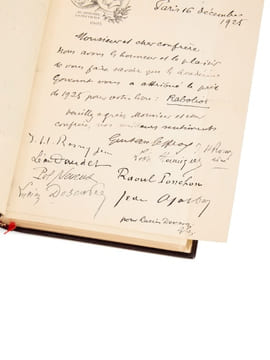 Paris 16 décembre
1925
Monsieur et cher confrère
Nous avons l'honneur et le plaisir
de vous faire savoir que la
Goncourt vous a attribué le prix
de 1925 pour votre livre : Raboliot
Veuillez agréer Monsieur et cher
confrère, nos sentiments
J. H. Rosny jeune
Gustave Geffroy
J. H. Rosny
Léon Daudet
Léon Hennique
Pol Neveux
Raoul Ponchon
Lucien Descaves
Jean Ajalbert
pour